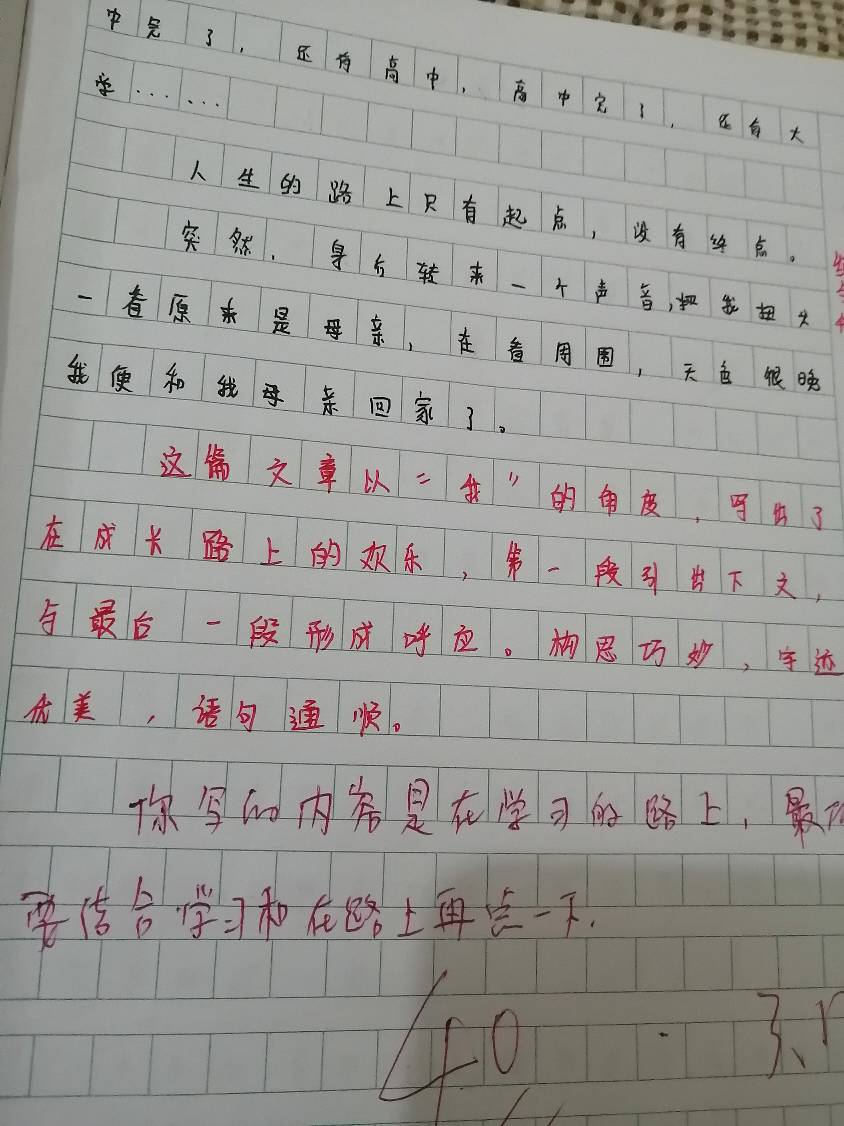 中完了，还有高中，高中完了，还有大
学……
人生的路上只有起点，没有终点。
突然，身后转来一个声音，把我扭头
一看原来是母亲，在看周围，天色很晚
我便和我母亲回家了。
这篇文章以“我”的角度，写出了
在成长路上的欢乐，第一段引出下文，
与最后一段形成呼应。构思巧妙，字迹
优美，语句通顺。
你写的内容是在学习的路上，最
要结合学习和在路上再点一下.
40